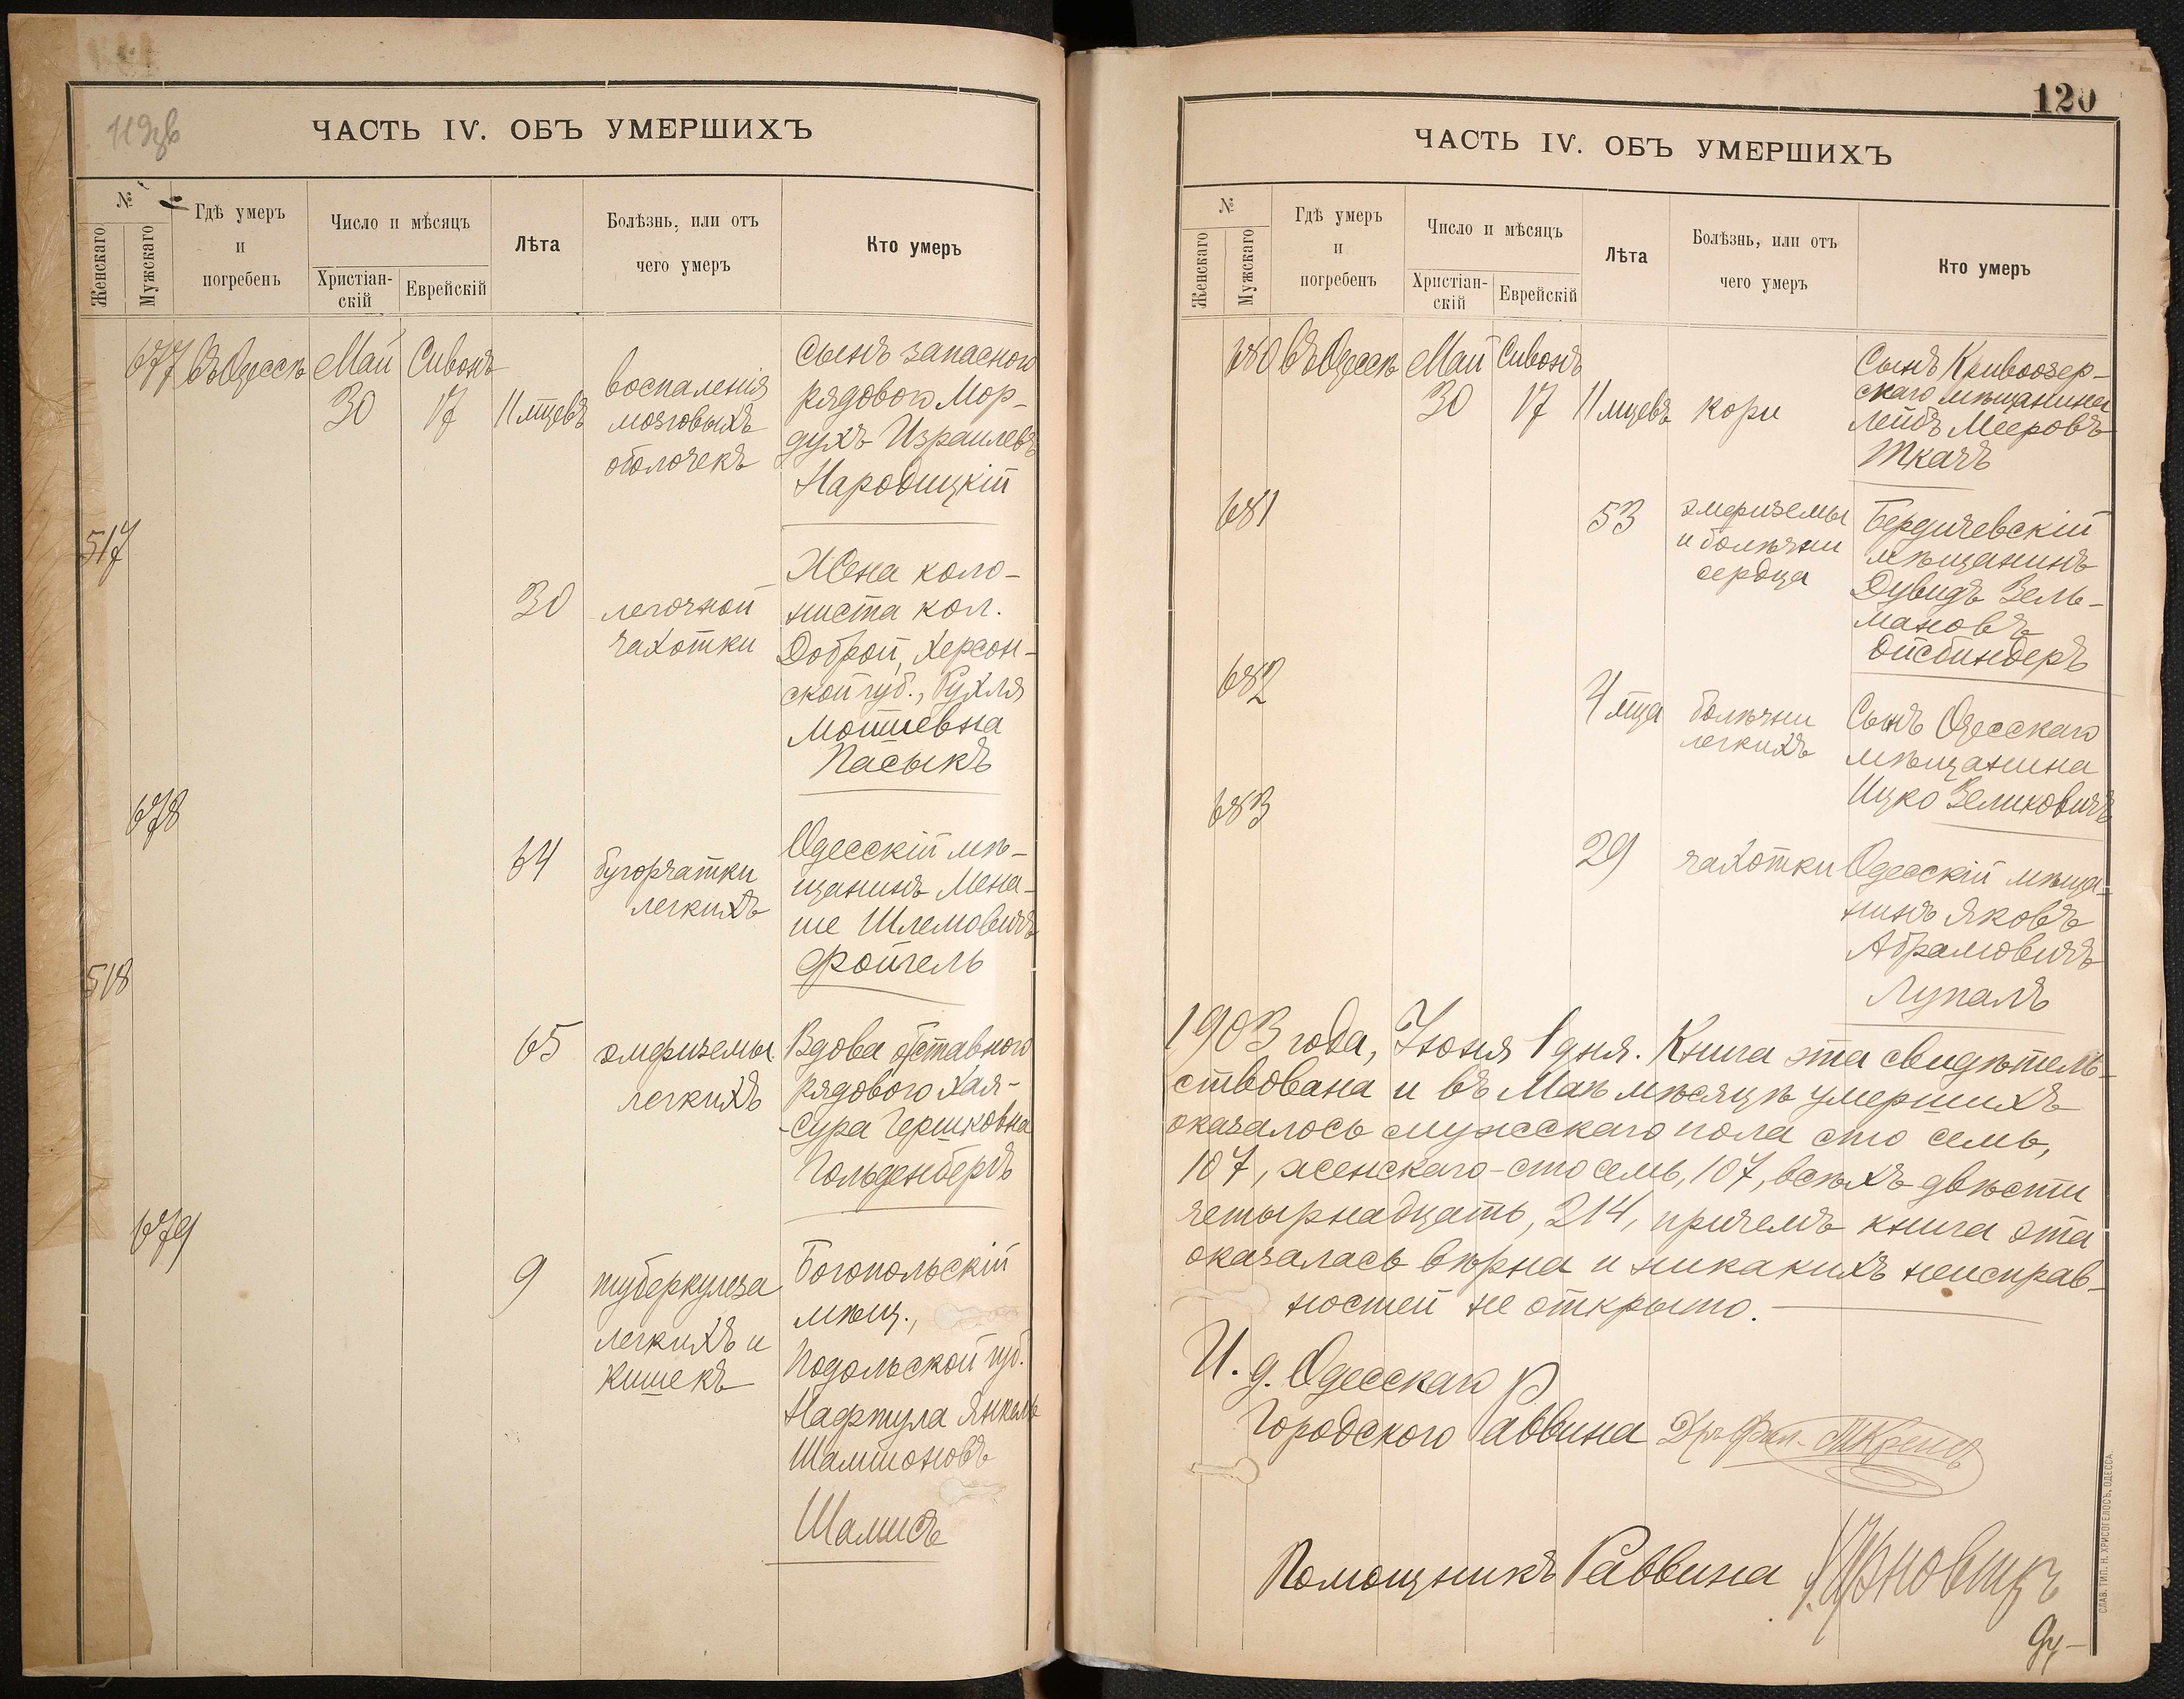 119об
ЧАСТЬ IV. ОБЪ УМЕРШИХЪ
№
Женскаго
Мужскаго
Гдѣ умеръ
и
погребенъ
Число и мѣсяцъ
Христіан-
скій
Еврейскій
Лѣта
Болѣзнь, или отъ
чего умеръ
Кто умеръ
677 Въ Одессѣ Май 30 Сивонъ 17 11 мцевъ
воспаленія
мозговыхъ
оболочекъ
Сынъ запасного
рядового Мор-
духъ Израилевъ
Народицкій
517
30
легочной
чахотки
Жена коло-
ниста кол.
Доброй, Херсон-
ской губ., Рухля
Мотиевна
Пасыкъ
678
64
бугорчатки
легкихъ
Одесскій мѣ-
щанинъ Мена-
ше Шлемовичъ
Фойгель
518
65
эмфиземы
легкихъ
Вдова отставного
рядового Хая-
-Сура Гершковна
Гольденбергъ
679
9
туберкулеза
легкихъ и
кишекъ
Богопольскій
мѣщ.,
Подольской губ.
Нафтула Янкель
Шамшоновъ
Шамисъ
120
ЧАСТЬ IV. ОБЪ УМЕРШИХЪ
№
Женскаго
Мужскаго
Гдѣ умеръ
и
погребенъ
Число и мѣсяцъ
Христіан-
скій
Еврейскій
Лѣта
Болѣзнь, или отъ
чего умеръ
Кто умеръ
680 Въ Одессѣ Май 30 Сивонъ 17 11 мцевъ кори
Сынъ Кривоозер-
скаго мѣщанина
Лейбъ Мееровъ
Ткачъ
681
53
эмфиземы
и болѣзни
сердца
Бердичевскій
мѣщанинъ
Дувидъ Зель-
мановъ
Ойсбиндеръ
682
4 мца
болѣзни
легкихъ
Сынъ Одесскаго
мѣщанина
Ицко Зеликовичъ
683
29
чахотки
Одесскій мѣща-
нинъ Яковъ
Абрамовичъ
Лупалъ
1903 года, Іюня 1 дня. Книга эта свидѣтель-
ствована и въ Маѣ мѣсяцѣ умершихъ
оказалось мужскаго пола сто семь,
107, женскаго-сто семь, 107, всѣхъ двѣсти
четырнадцать, 214, причемъ книга эта
оказалась вѣрна и никакихъ неисправ-
ностей не открыто.
И. д. Одесскаго
Городского Раввина Д-ръ Фил. Крепсъ
Помощникъ Раввина
СЛАВ. ТИП. Н. ХРИСОГЕЛОСЪ, ОДЕССА